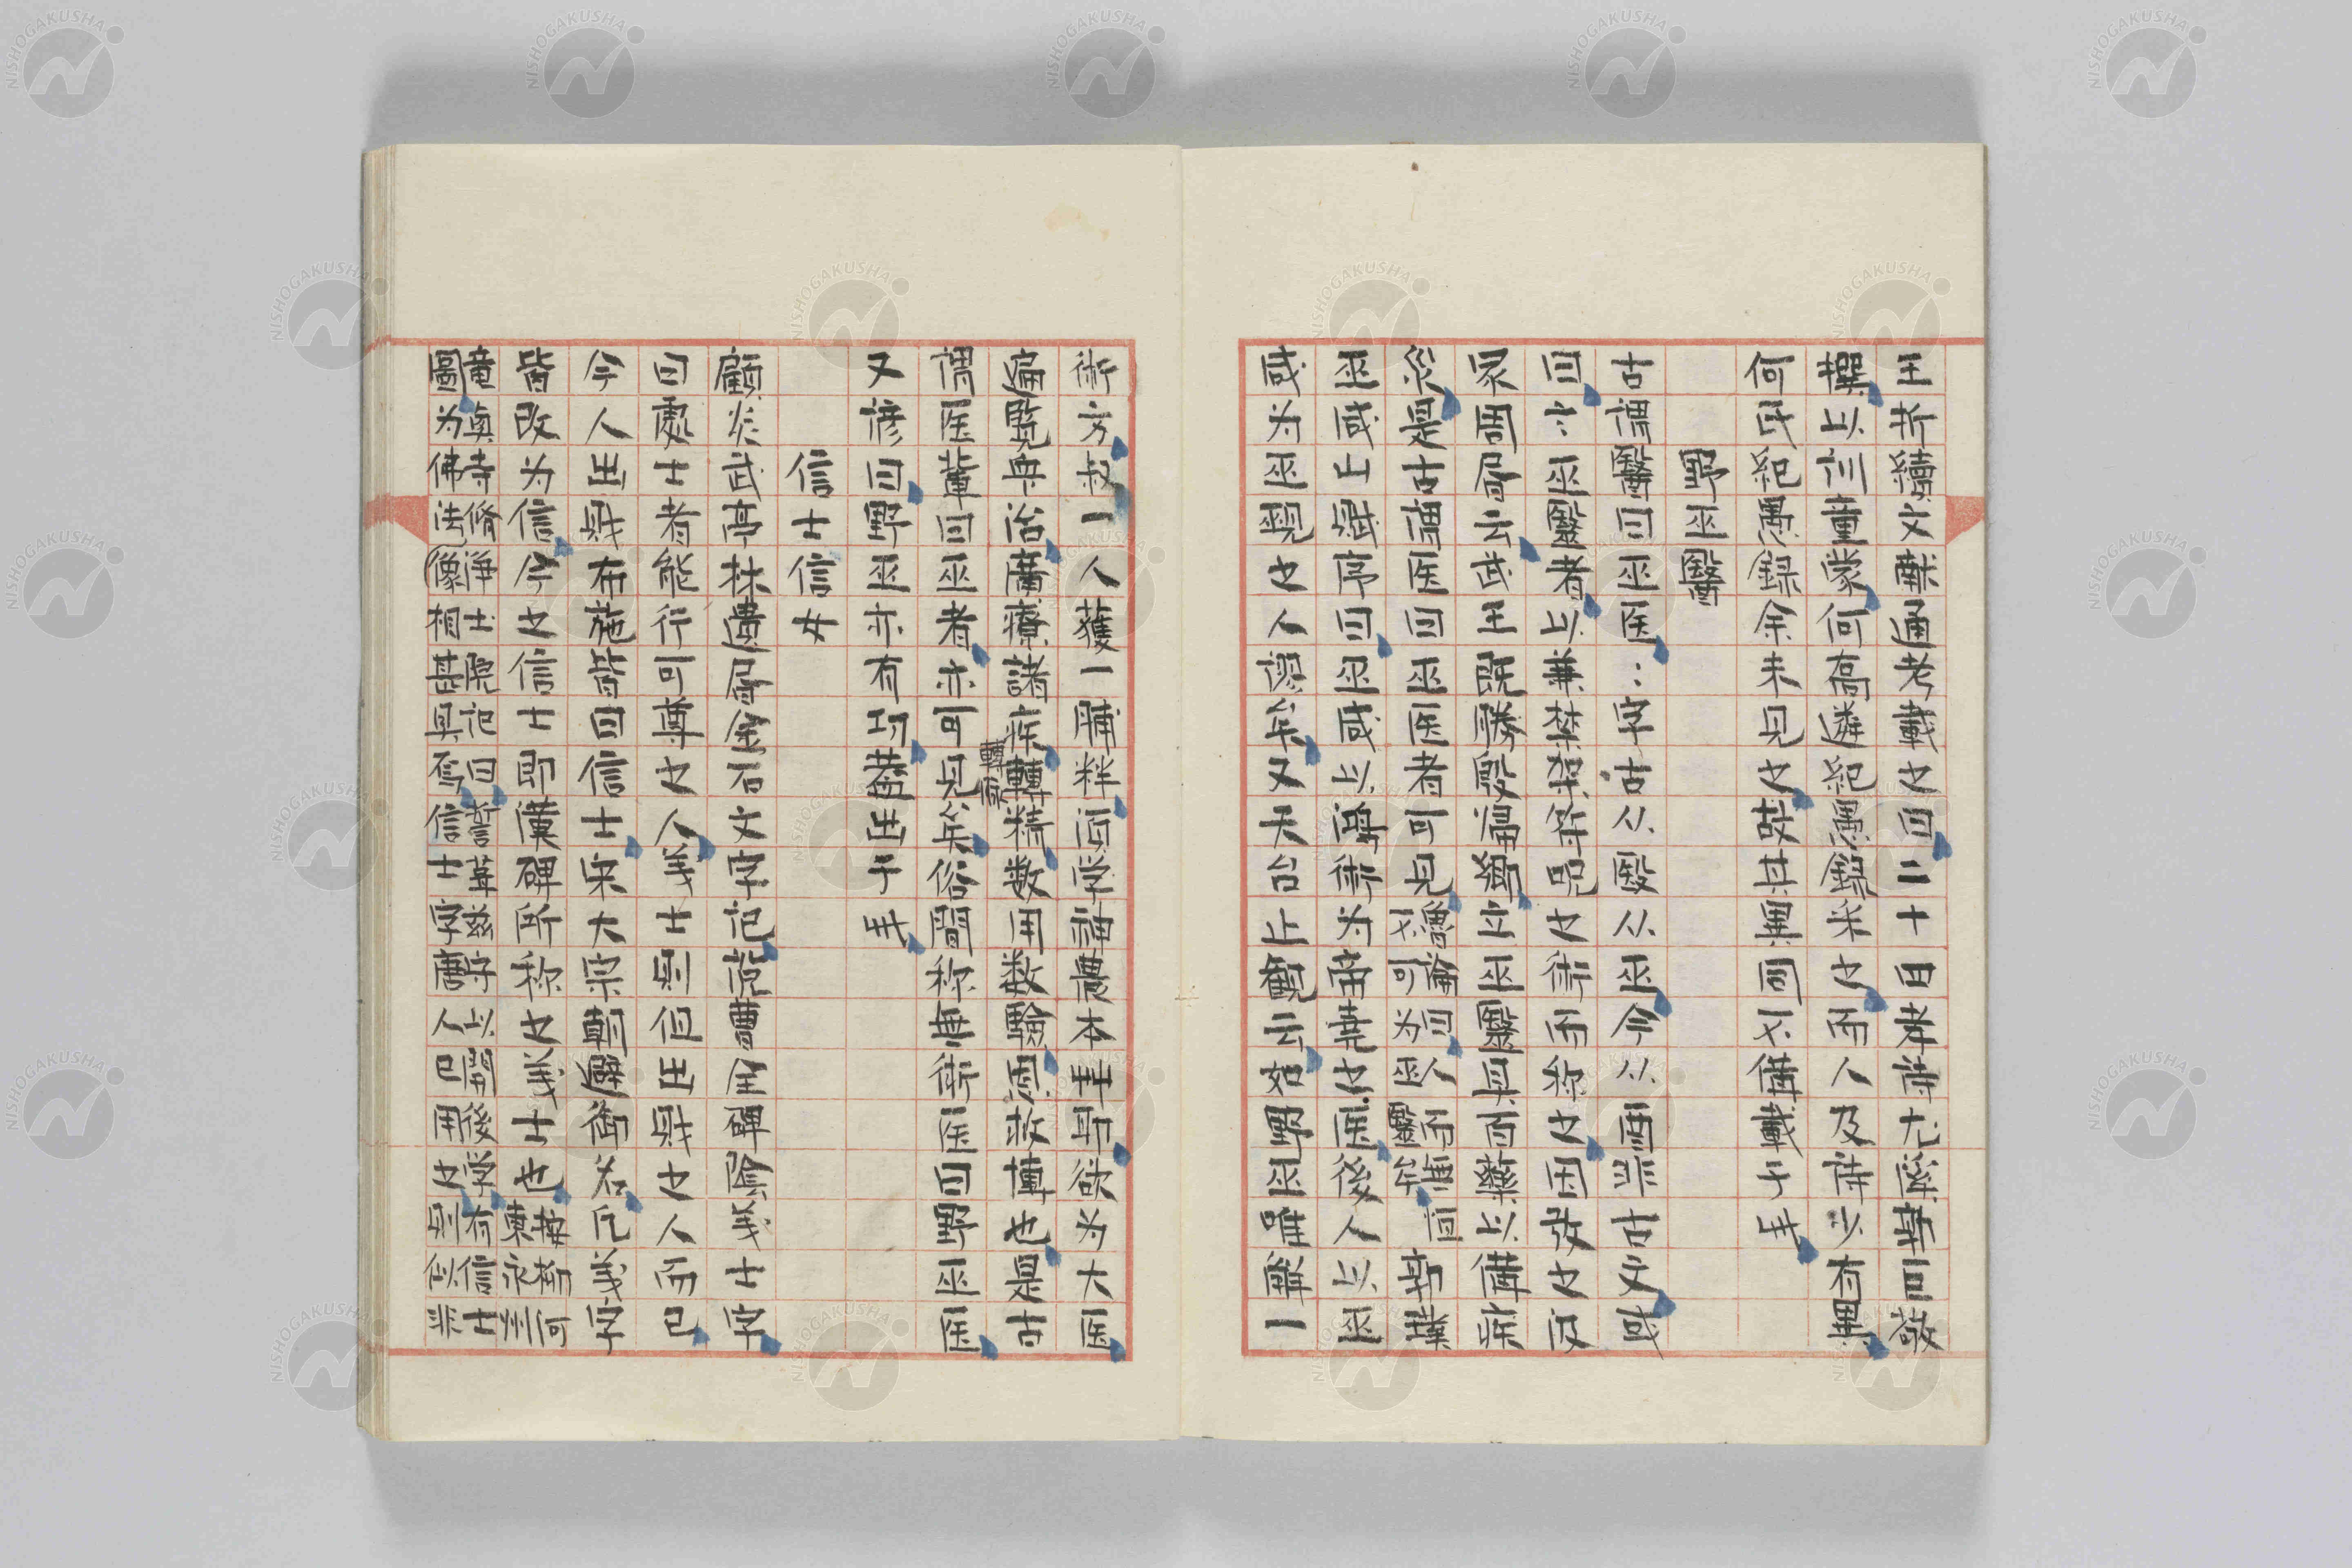 王折續文献通考載之曰二十四孝詩尤溪郭巨敬
撰以訓童蒙何高遴紀愚録采之而人及詩少有異
何氏紀愚録余未見之故其異同不備載于此
野巫醫
古謂醫曰巫医〻字古从毉从巫今从酉非古文或
曰〻巫毉者以兼禁架之術而称之因按之汲
冢周書云武王既勝殷立巫毉具百藥以備疾
災是古謂医曰巫医者可見論語曰人而無恒不可為巫毉 郭璞
巫咸山賦序曰巫咸以鴻術为帝堯之医後人以巫
咸为巫覡之人誤矣又天台止觀云如野巫唯解一
術方叔一人獲一脯柈何学神農本草耶欲为大医
遍覧与治廣療諸疾轉精数用数驗恩救博也是古
謂医輩曰巫者亦可見矣俗間称無術医曰野巫医
又諺曰野巫亦有功蓋出于此
信士信女
顧炎武亭林遺書金石文字記范曹全碑陰義士字
曰處士者能行可尊之人義士則但出財之人而已
今人出財布施皆曰信士宋太宗朝避御名凡義字
皆改为信今之信士即漢碑所称之義士也
竜興寺脩浄土院記曰誓葺兹宇以開後学有信士
圖为佛法像相甚具焉信士字唐人已用之則似非
NISHOGAKUSHA